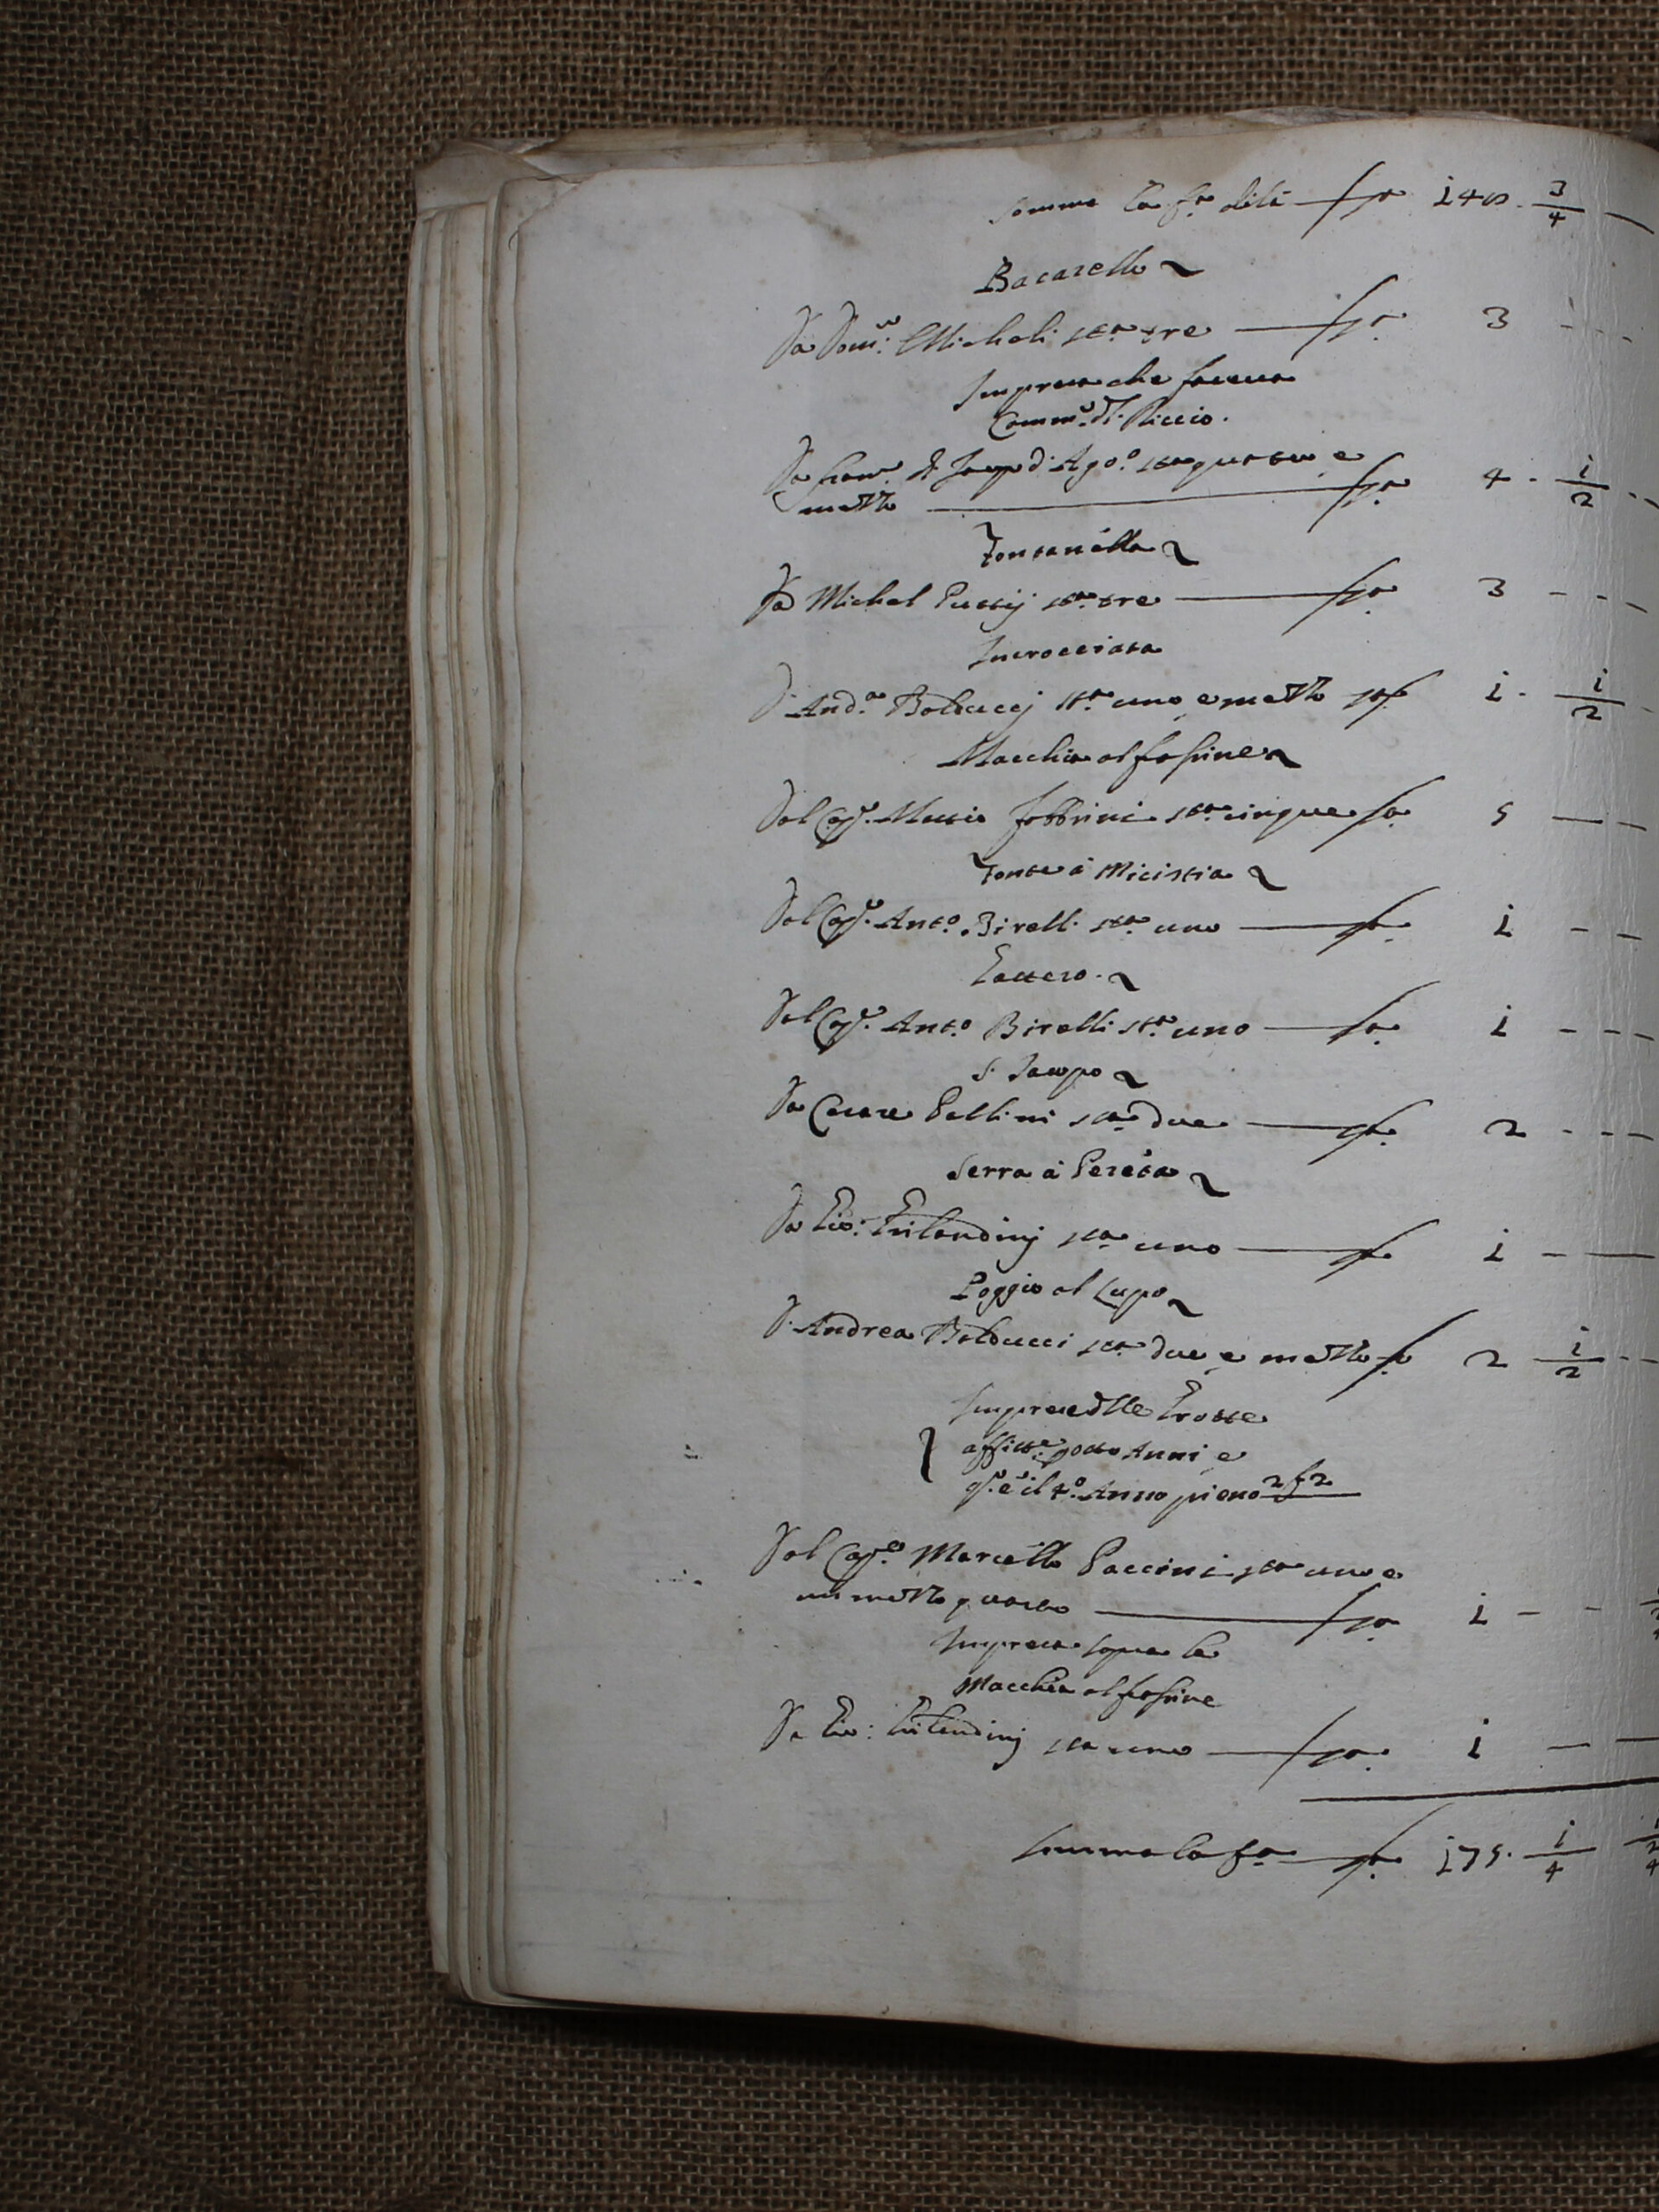 somma la fa. di là — sa 148. 3/4 —
Bacarello
Da Dom:co Micheli sta. tre — sa. 3 - - -
Impresa che faceva
Comm.e di Riccio.
Da Fran.co di Jacpo d'Ago.o sta quattro e
mezzo — sa. 4 . 1/2 - -
Fontanella
Da Michel Puccij sta. tre — sa. 3 - - -
Incrocciata
D. And.a Balducij sta. uno e mezzo sa. 1 . 1/2 -
Macchia al frassine
Dal Capo. Mutio Fabbrini sta. cinque sa. 5 — -
Fonte à Micistia
Dal Capo. Anto. Birelli sta. uno — sa. 1 - -
Dal Capo. Anto Birelli sta. uno — sa. 1 - - -
S. Jacopo
Da Cesare Pallini sta. due — sa. 2 - - -
Serra à Pereta
Da Gio: Orlandinj sta. uno — sa 1 - —
Poggio al Lupo
D. Andrea Balducci sta due e mezzo sa. 2 1/2 - -
Imprese delle Grotte
anni e
q.o è il 4.o Anno pieno
Dal Capo. Marcello Paccini sta uno e
un mezzo quarto — sa. 1 - -
Impresa sopra la
Macchia al frassine
Da Gio: Orlandinj sta uno — sa. 1 — —
Somma la fa. — sa. 175. 1/4 —